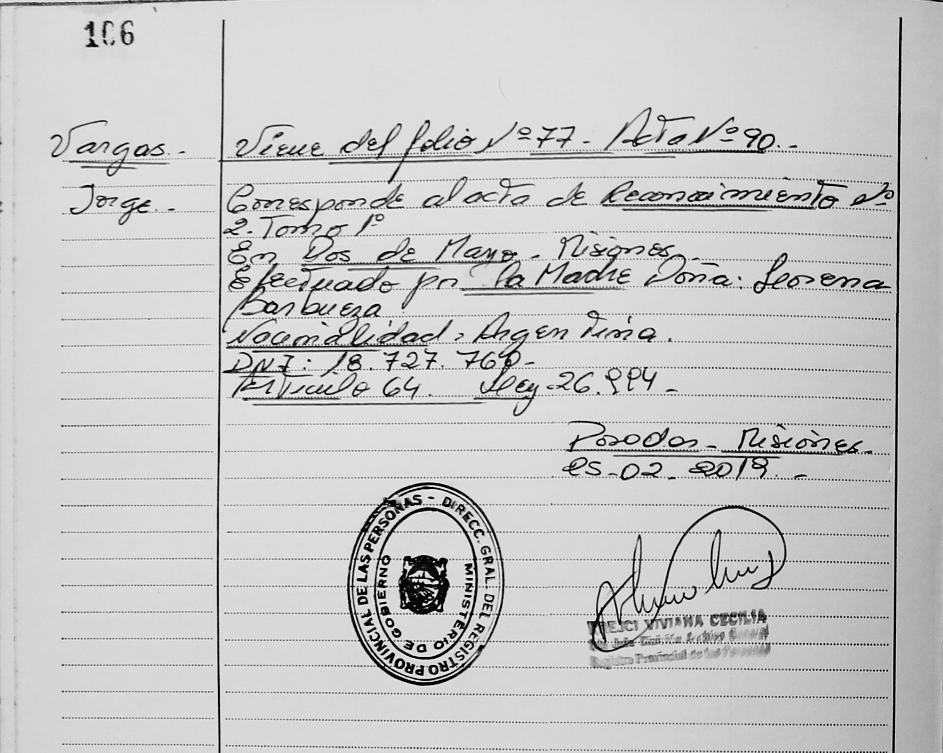 106
Vargas.-
Jorge.-
Viene del folio Nº 77 - Acta Nº 90.-
Corresponde al acta de Reconocimiento Nº
2. Tomo 1º
En Dos de Mayo - Misiones.
Efectuado por la Madre Doña: Lorena
Barbueza
Nacionalidad: Argentina.
DNI: 18.727.760-
Artículo 64. Ley 26.994-
Posadas - Misiones.-
25-02-2019.-
DIRECC. GRAL. DEL REGISTRO PROVINCIAL DE LAS PERSONAS -
MINISTERIO DE GOBIERNO
VIVIANA CECILIA
Registro Provincial de las Personas